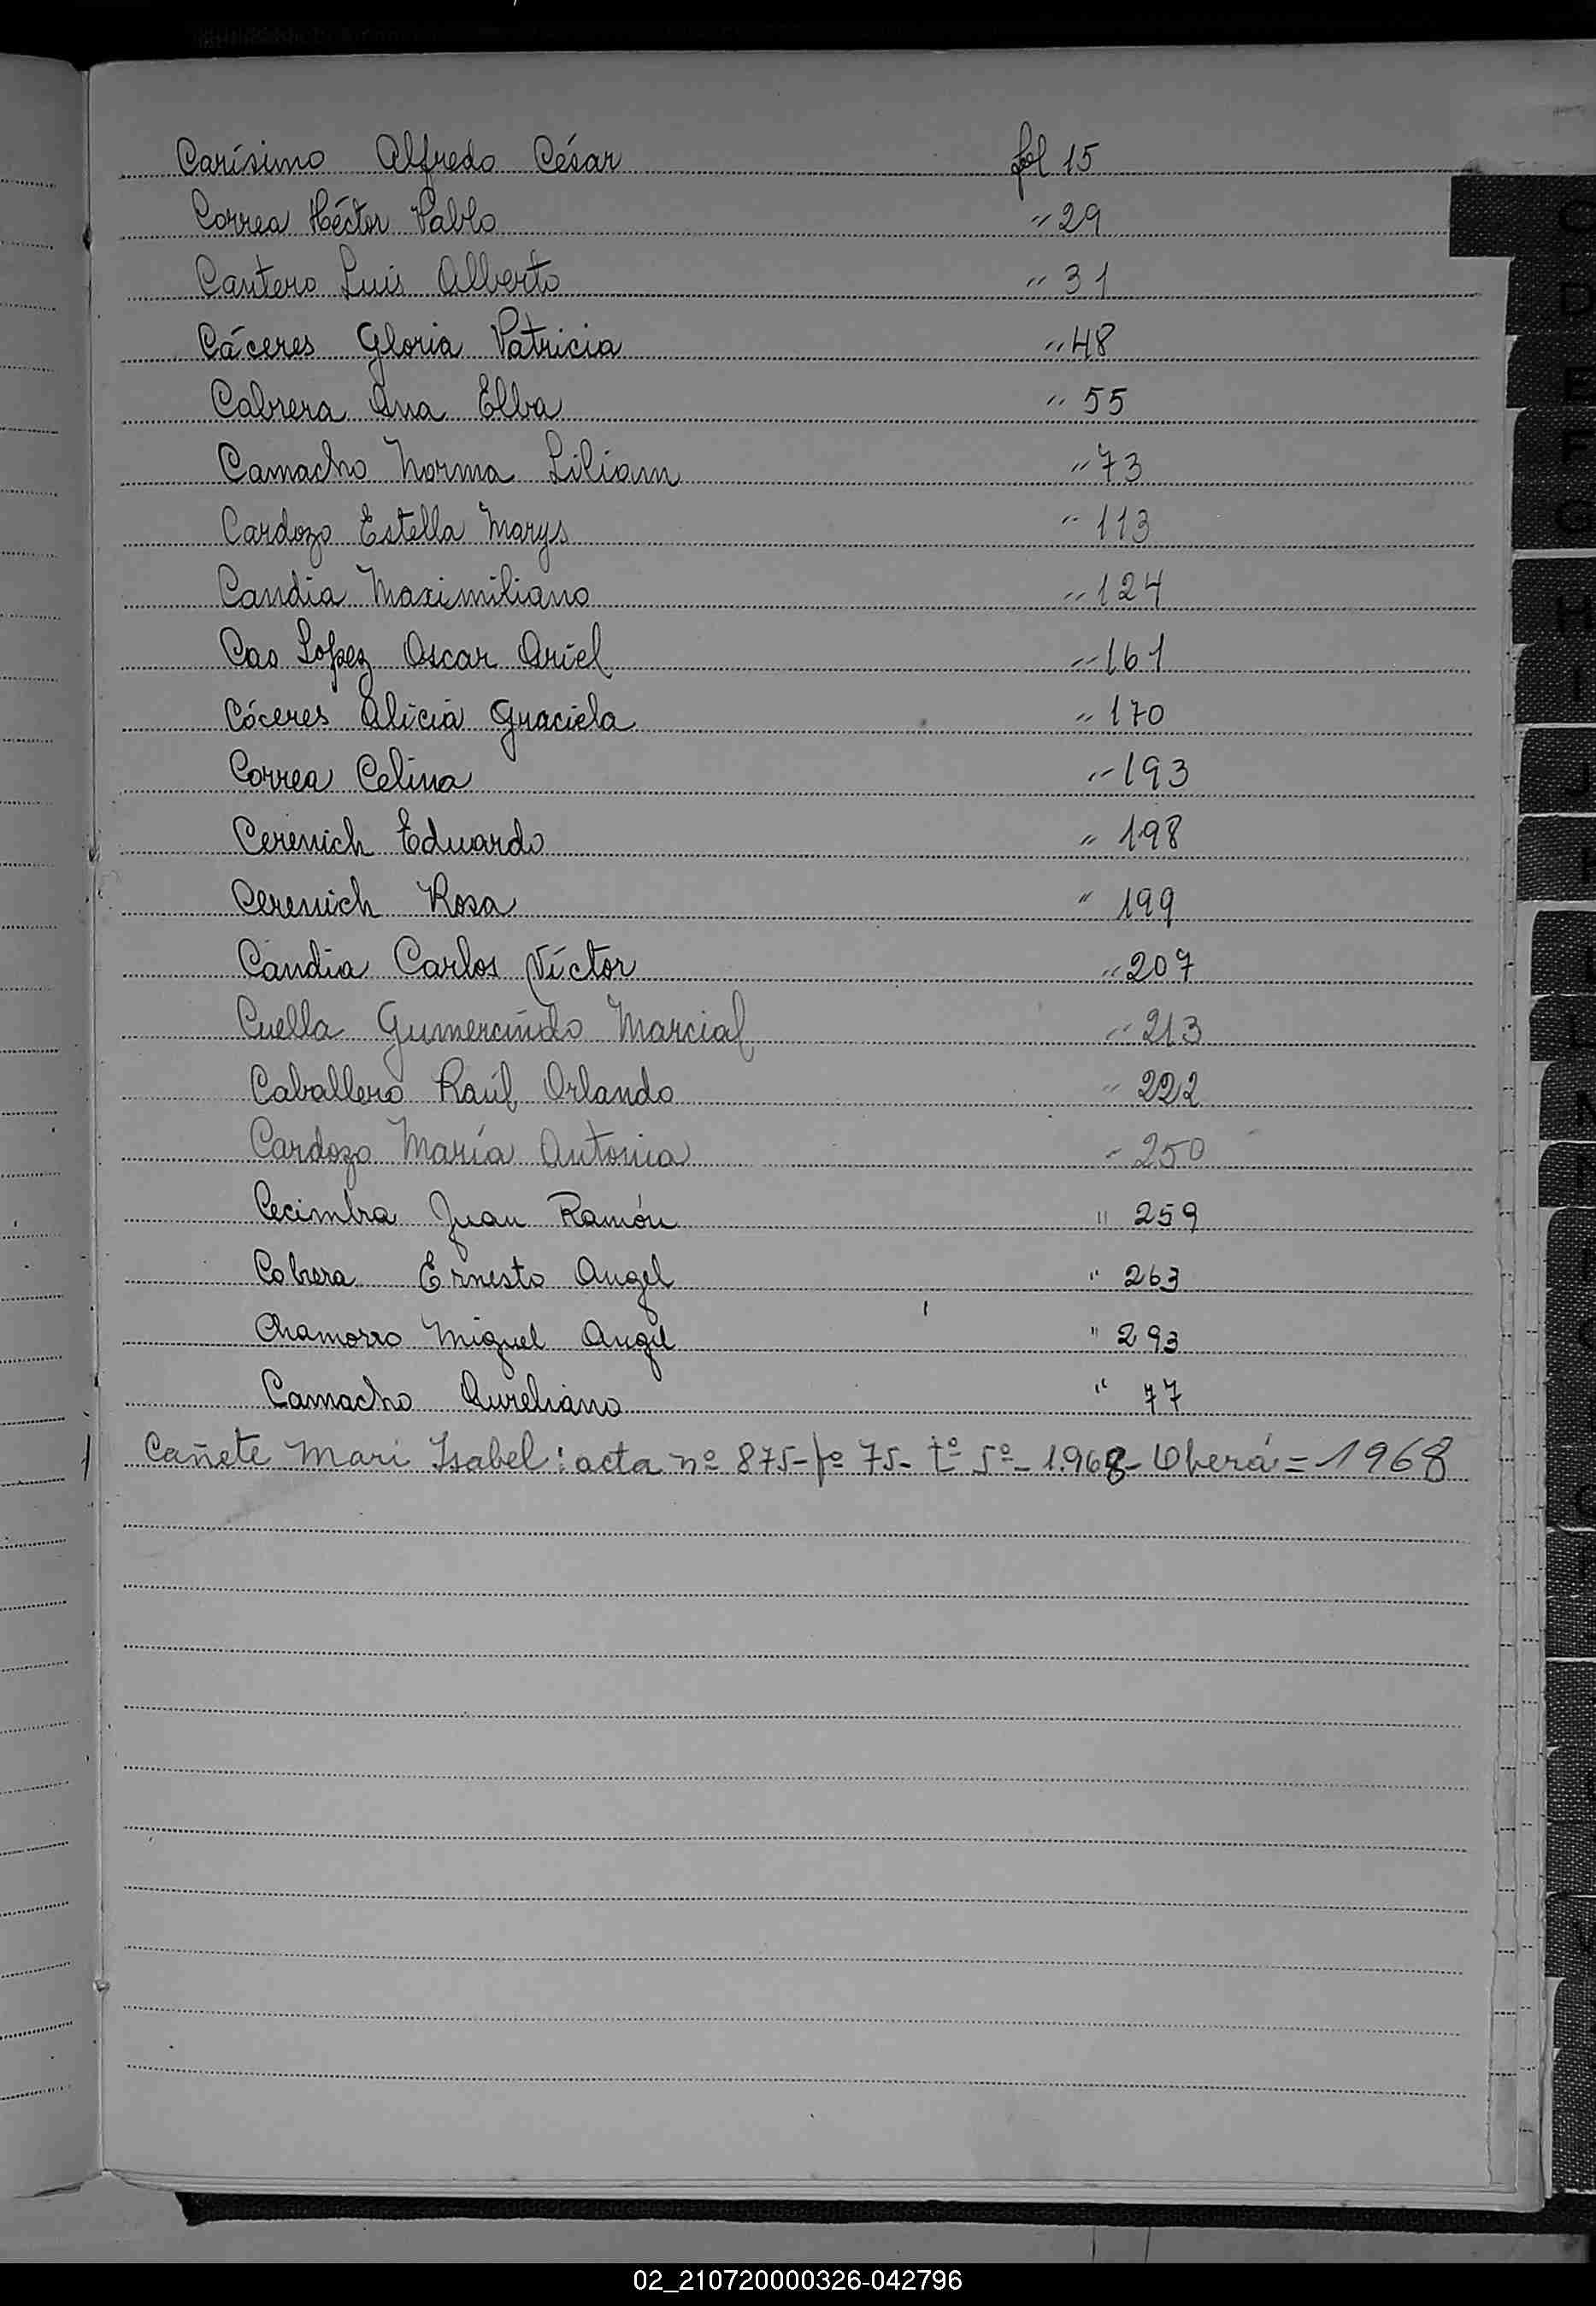 Carísimo Alfredo César fol 15
Correa Héctor Pablo " 29
Cantero Luis Alberto " 31
Cáceres Gloria Patricia " 48
Cabrera Ana Elba " 55
Camacho Norma Liliam " 73
Cardozo Estella Marys " 113
Candia Maximiliano " 124
Cao Lopez Oscar Ariel " 161
Cóceres Alicia Graciela " 170
Correa Celina " 193
Cerenich Eduardo " 198
Cerenich Rosa " 199
Candia Carlos Víctor " 207
Cuella Gumercindo Marcial " 213
Caballero Raúl Orlando " 222
Cardozo María Antonia " 250
Cecimbra Juan Ramón " 259
Cabrera Ernesto Angel " 263
Chamorro Miguel Angel " 293
Camacho Aureliano " 77
Cañete Mari Isabel: acta nº 875-fº 75- tº 5º- 1.968- Oberá = 1968
C
D
E
F
G
H
I
J
02_210720000326-042796